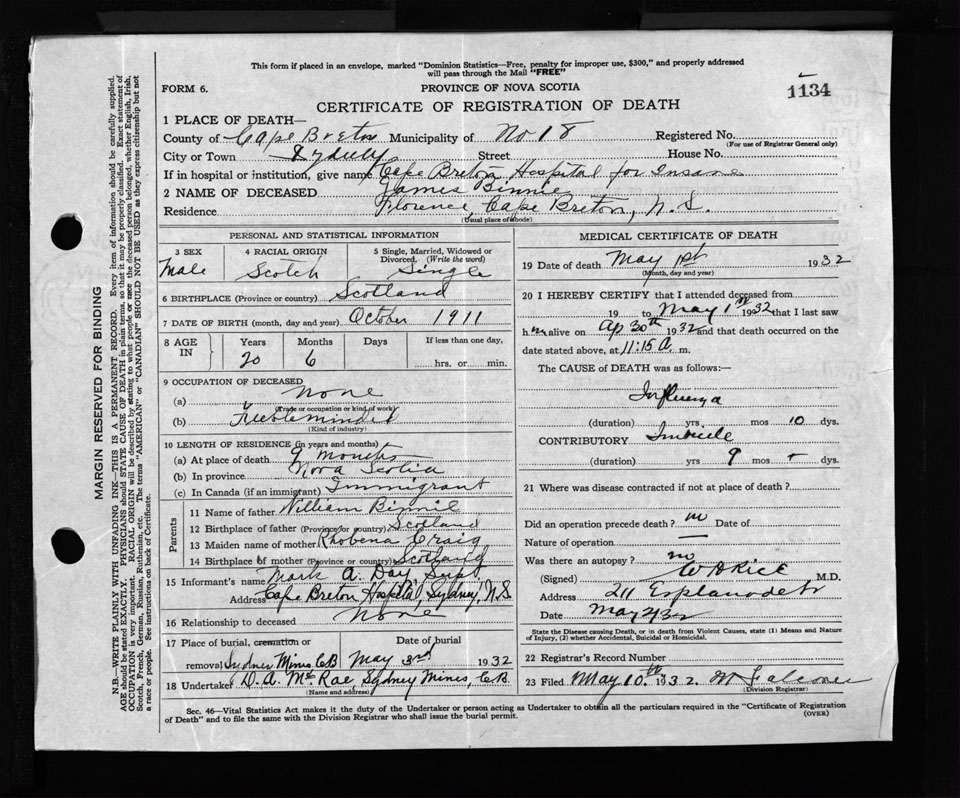 This form if placed in an envelope, marked "Dominion Statistics—Free, penalty for improper use, $300," and properly addressed
will pass through the Mail "FREE"
FORM 6.
PROVINCE OF NOVA SCOTIA
1134
CERTIFICATE OF REGISTRATION OF DEATH
1 PLACE OF DEATH—
County of Cape Breton Municipality of No 18 Registered No.
(For use of Registrar General only)
City or Town Sydney Street House No.
If in hospital or institution, give name Cape Breton Hospital for Insane
2 NAME OF DECEASED James Binnie
Residence Florence, Cape Breton, N.S.
(Usual place of abode)
PERSONAL AND STATISTICAL INFORMATION
3 SEX 4 RACIAL ORIGIN 5 Single, Married, Widowed or
Divorced. (Write the word)
Male Scotch Single
6 BIRTHPLACE (Province or country) Scotland
7 DATE OF BIRTH (month, day and year) October 1911
8 AGE IN Years Months Days If less than one day,
20 6 hrs. or min.
9 OCCUPATION OF DECEASED
(a) None
(Trade or occupation or kind of work)
(b) Feebleminded
(Kind of industry)
10 LENGTH OF RESIDENCE (in years and months)
(a) At place of death 9 months
(b) In province Nova Scotia
(c) In Canada (if an immigrant) Immigrant
Parents
11 Name of father William Binnie
12 Birthplace of father (Province or country) Scotland
13 Maiden name of mother Rhobena Craig
14 Birthplace of mother (Province or country) Scotland
15 Informant's name Mark A. Day Supt
Address Cape Breton Hospital, Sydney, N.S.
16 Relationship to deceased None
17 Place of burial, cremation or Date of burial
removal Sydney Mines CB May 3rd 1932
18 Undertaker D. A. McRae Sydney Mines, C.B.
(Name and address)
MEDICAL CERTIFICATE OF DEATH
19 Date of death May 1st 1932
(Month, day and year)
20 I HEREBY CERTIFY that I attended deceased from
19 to May 1st 1932 that I last saw
h im alive on Ap 30th 1932 and that death occurred on
date stated above, at 11:15 a. m.
The CAUSE of DEATH was as follows:—
Influenza
(duration) yrs mos 10 dys.
CONTRIBUTORY Imbecile
(duration) yrs 9 mos + dys.
21 Where was disease contracted if not at place of death?
Did an operation precede death? no Date of
Nature of operation —
Was there an autopsy? no
(Signed) W A Rice M.D.
Address 211 Esplanade St
Date May 2/32
State the Disease causing Death, or in death from Violent Causes, state (1) Means and Nature
of Injury, (2) whether Accidental, Suicidal or Homicidal.
22 Registrar's Record Number
23 Filed May 10th 1932
(Division Registrar)
Sec. 46—Vital Statistics Act makes it the duty of the Undertaker or person acting as Undertaker to obtain all the particulars required in the "Certificate of Registration
of Death" and to file the same with the Division Registrar who shall issue the burial permit.
(OVER)
MARGIN RESERVED FOR BINDING
N.B.—WRITE PLAINLY WITH UNFADING INK—THIS IS A PERMANENT RECORD. Every item of information should be carefully supplied.
AGE should be stated EXACTLY. PHYSICIANS should STATE CAUSE OF DEATH in plain terms, so that it may be properly classified. Exact statement of
OCCUPATION is very important. RACIAL ORIGIN will be described by stating to what people or race the deceased person belonged, whether English, Irish,
Scotch, French, German, Russian, Ruthenian, etc. The terms "AMERICAN" or "CANADIAN" SHOULD NOT BE USED as they express citizenship but not
a race or people. See instructions on back of Certificate.